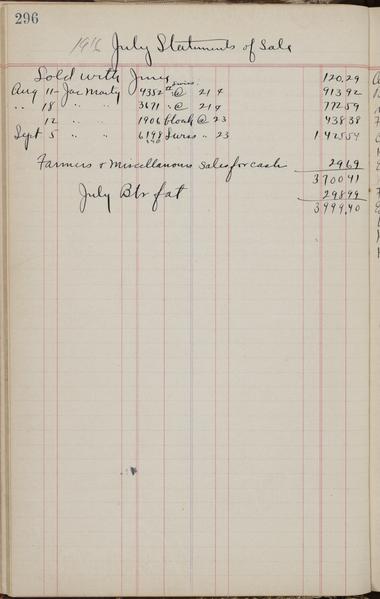 296
1916 July Statements of Sale
Sold with June 120.29
Swiss
Aug 11 Jac Marty 4352 # @ 21¢ 913 92
" 18 " " 3671 " @ 21¢ 772 59
12 " " 1906 block @ 23 438 38
Sept 5 " " 6198 Swiss " 23 1425 54
Farmers & Miscellanous sales for cash 29 69
3700 41
July Btr fat 298 99
3999.40